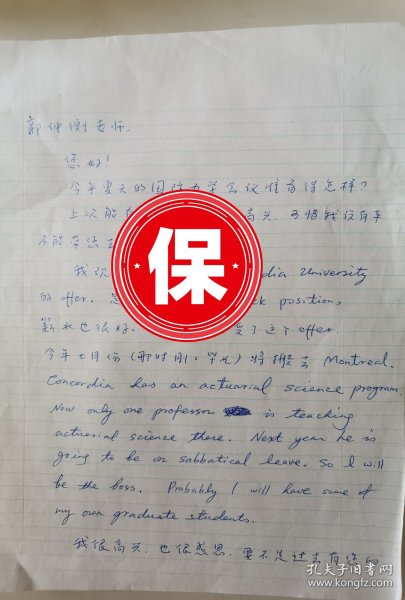 郭仲衡老师:
您好!
今年夏天的国际力学会议准备得怎样?
上次能 高兴.可惜我没有车
不能带您
我 dia University
的 offer. position,
薪水也很好. 受了这个 offer.
保
今年七月份(那时刚 毕业)将搬去 Montreal.
Concordia has an actuarial science program
Now only one professor is teaching
actuarial science there. Next year he is
going to be on sabbatical leave. So I will
be the boss. Probably I will have some of
my own graduate students.
我很高兴.也很感恩.要不是过去有您的
孔夫子旧书网
www.kongfz.com